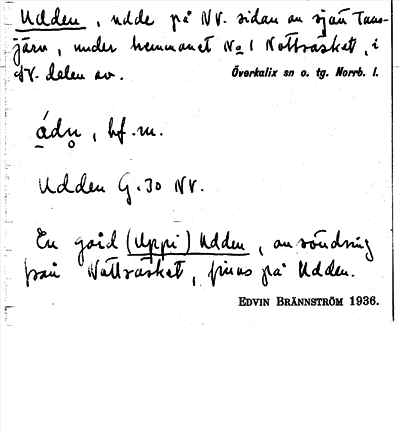 Udden, udde på NV. sidan av sjön Tans-
järn, under hemmanet No 1 Nattrasket, i
SV. delen av.
Överkalix sn o. tg. Norrb. l.
ádn̥, bf. m.
Udden G. 30 NV.
En gård (Uppi) Udden, avsöndring
från Nattrasket, finns på Udden.
EDVIN BRÄNNSTRÖM 1936.